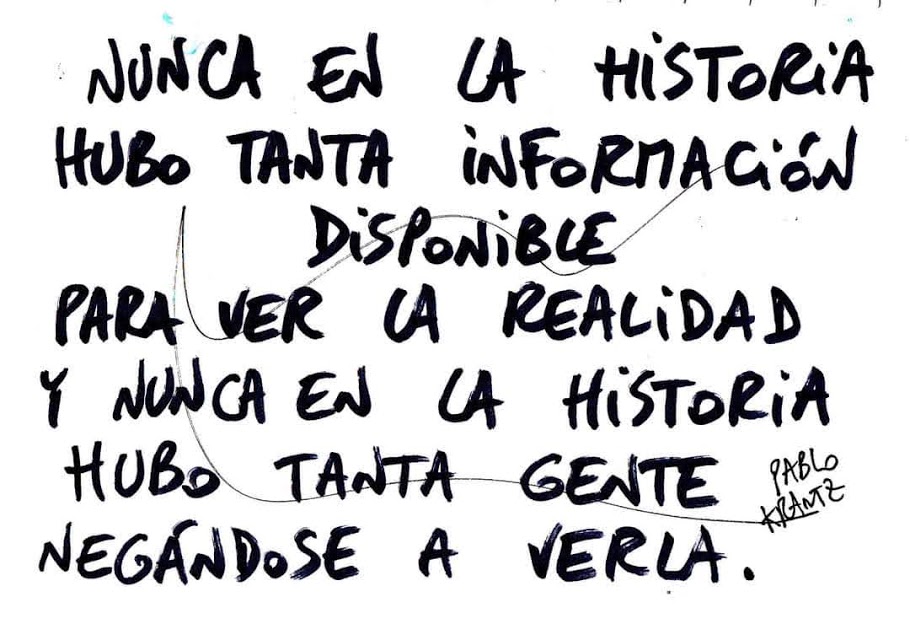 NUNCA EN LA HiSTORiA
HUBO TANTA iNFORMACiÓN
DiSPONiBLE
PARA VER LA REALiDAD
Y NUNCA EN LA HiSTORiA
HUBO TANTA GENTE
NEGÁNDOSE A VERLA.
PABLO
KRANTZ